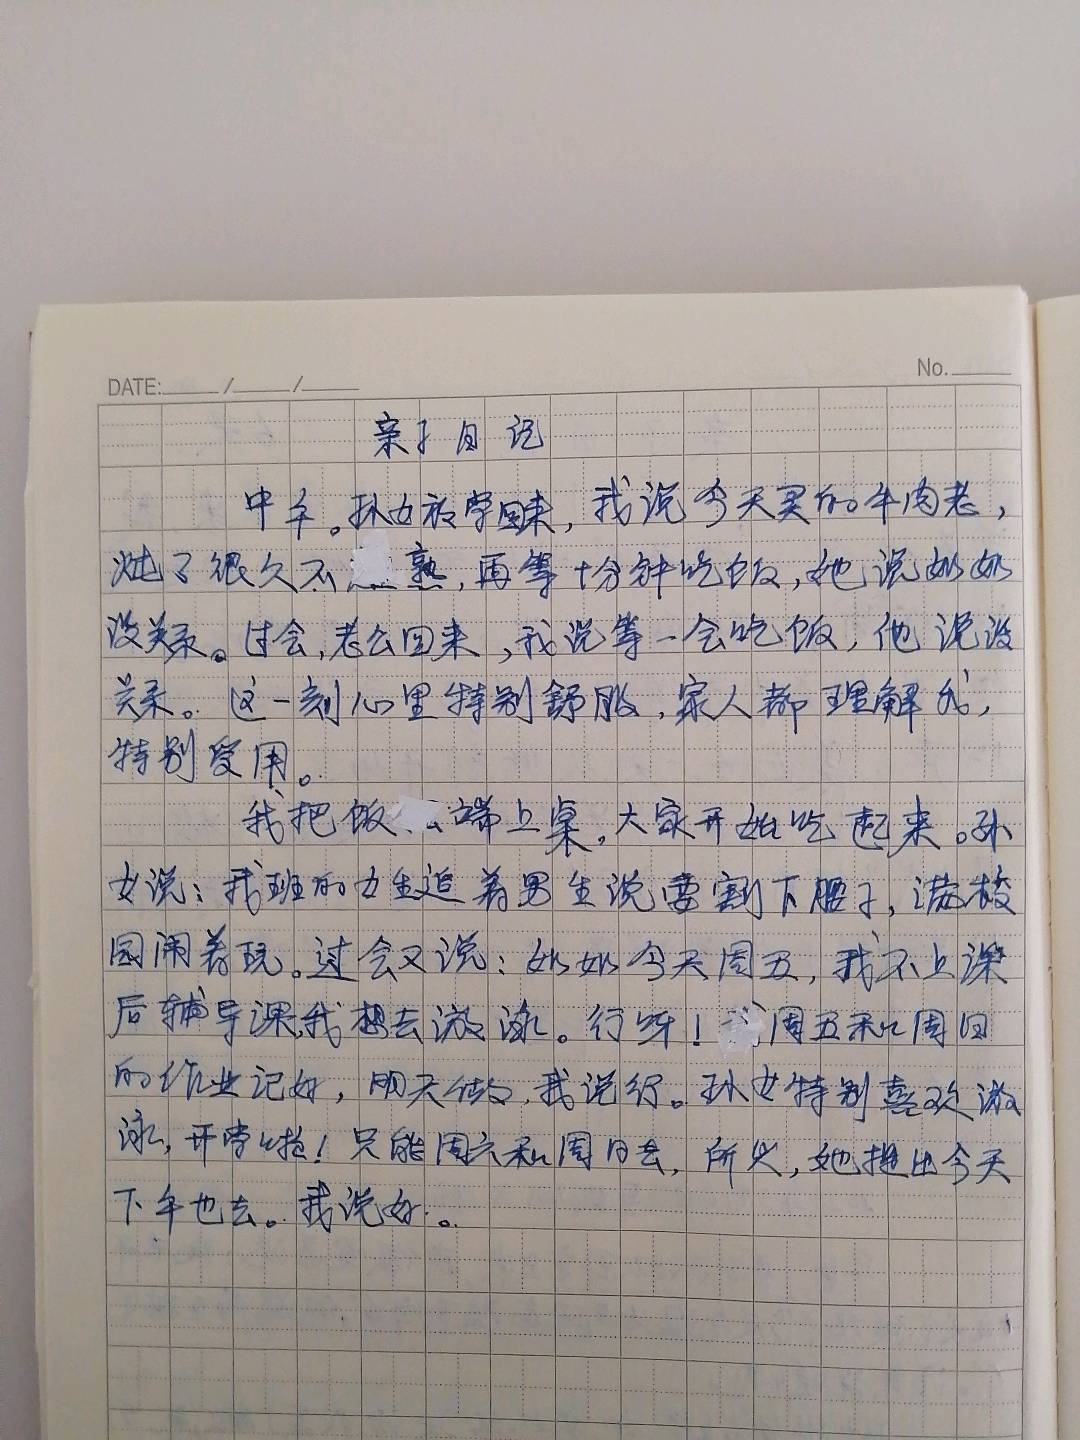 DATE: / /
No.
亲子日记
中午。孙女放学回来，我说今天买的牛肉老，
炖了很久不 熟，再等十分钟吃饭，她说奶奶
没关系。过会，老公回来，我说等一会吃饭，他说没
关系。这一刻心里特别舒服，家人都理解我，
特别受用。
我把饭 端上桌，大家开始吃起来。孙
女说：我班的女生追着男生说要割下腰子，满校
园闹着玩。过会又说：奶奶今天周五，我不上课
后辅导课，我想去游泳。行呀！ 周五和周日
的作业记好，明天做，我说行。孙女特别喜欢游
泳，开学啦！只能周六和周日去，所以，她提出今天
下午也去。我说好。